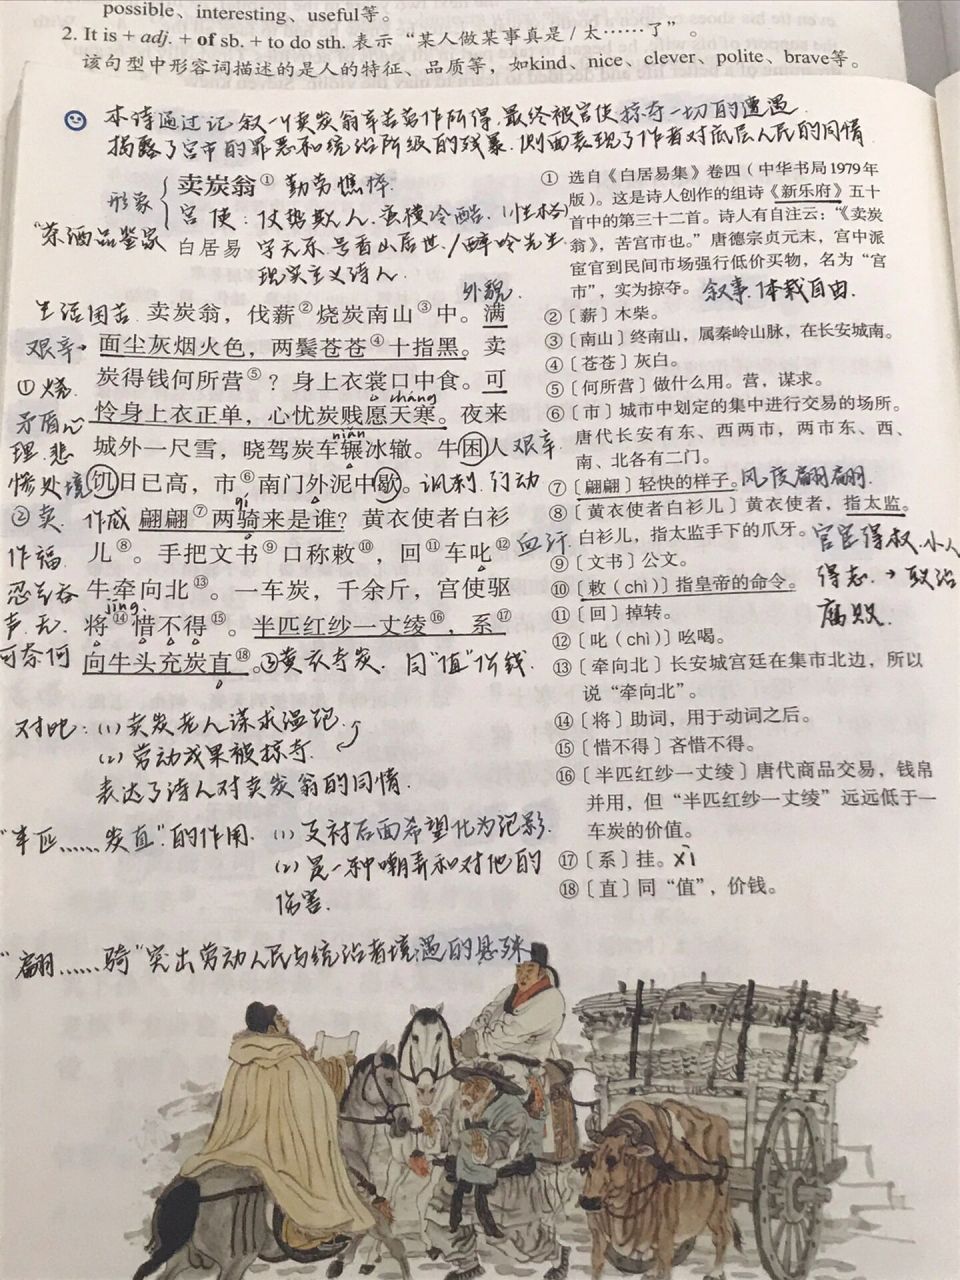 possible、interesting、useful等。
2. It is + adj. + of sb. + to do sth. 表示“某人做某事真是 / 太……了”。
该句型中形容词描述的是人的特征、品质等，如kind、nice、clever、polite、brave等。
本诗通过记叙一个卖炭翁辛苦劳作所得,最终被宫使掠夺一切的遭遇
揭露了宫市的罪恶和统治阶级的残暴.侧面表现了作者对底层人民的同情
形象
卖炭翁① 勤劳憔悴.
宫 使：仗势欺人.蛮横冷酷.(性格)
白居易 字乐天.号香山居世./醉吟先生.
现实主义诗人.
外貌.
生活困苦
艰辛→
①烧.
矛盾心
理.悲
惨处境
②卖.
作威
作福
忍气吞
声.无
可奈何
卖炭翁，伐薪②烧炭南山③中。满
面尘灰烟火色，两鬓苍苍④十指黑。卖
炭得钱何所营⑤？身上衣裳口中食。可
cháng
怜身上衣正单，心忧炭贱愿天寒。夜来
niǎn
城外一尺雪，晓驾炭车辗冰辙。牛困人 艰辛
饥日已高，市⑥南门外泥中歇。讽刺.行动
qí
翩翩⑦两骑来是谁？黄衣使者白衫
儿⑧。手把文书⑨口称敕⑩，回⑪车叱⑫
牛牵向北⑬。一车炭，千余斤，宫使驱
jìng.
将⑭惜不得⑮。半匹红纱一丈绫⑯，系⑰
向牛头充炭直⑱。③黄衣夺炭. 同“值”价钱
对比：(1)卖炭老人谋求温饱.
(2)劳动成果被掠夺.
表达了诗人对卖炭翁的同情.
“半匹……炭直”的作用. (1)反衬后面希望化为泡影.
(2)是一种嘲弄和对他的
伤害.
“翩……骑”突出劳动人民与统治者境遇的悬殊
① 选自《白居易集》卷四（中华书局1979年
版）。这是诗人创作的组诗《新乐府》五十
首中的第三十二首。诗人有自注云：“《卖炭
翁》，苦宫市也。”唐德宗贞元末，宫中派
宦官到民间市场强行低价买物，名为“宫
市”，实为掠夺。叙事.体裁自由.
②〔薪〕木柴。
③〔南山〕终南山，属秦岭山脉，在长安城南。
④〔苍苍〕灰白。
⑤〔何所营〕做什么用。营，谋求。
⑥〔市〕城市中划定的集中进行交易的场所。
唐代长安有东、西两市，两市东、西、
南、北各有二门。
⑦〔翩翩〕轻快的样子。风度翩翩.
⑧〔黄衣使者白衫儿〕黄衣使者，指太监。
白衫儿，指太监手下的爪牙。
⑨〔文书〕公文。
⑩〔敕（chì）〕指皇帝的命令。
小人
得志.→政治
腐败.
⑪〔回〕掉转。
⑫〔叱（chì）〕吆喝。
⑬〔牵向北〕长安城宫廷在集市北边，所以
说“牵向北”。
⑭〔将〕助词，用于动词之后。
⑮〔惜不得〕吝惜不得。
⑯〔半匹红纱一丈绫〕唐代商品交易，钱帛
并用，但“半匹红纱一丈绫”远远低于一
车炭的价值。
⑰〔系〕挂。xì
⑱〔直〕同“值”，价钱。